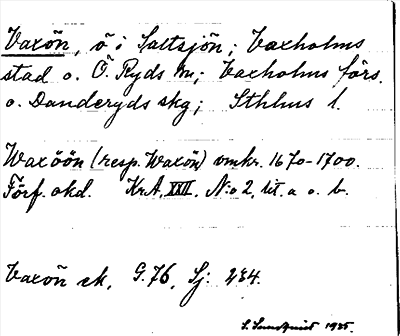 Vaxön, ö i Saltsjön; Vaxholms
stad o. Ö. Ryds sn; Vaxholms förs.
o. Danderyds skg; Sthlms l.
Waxöön (resp. Waxön) omkr. 1670-1700.
Förf. okd. Kr.A. XXII. N:o 2, lit. a o. b.
Vaxön ek. G. 76, Sj: 234.
S. Sundqvist 1935.